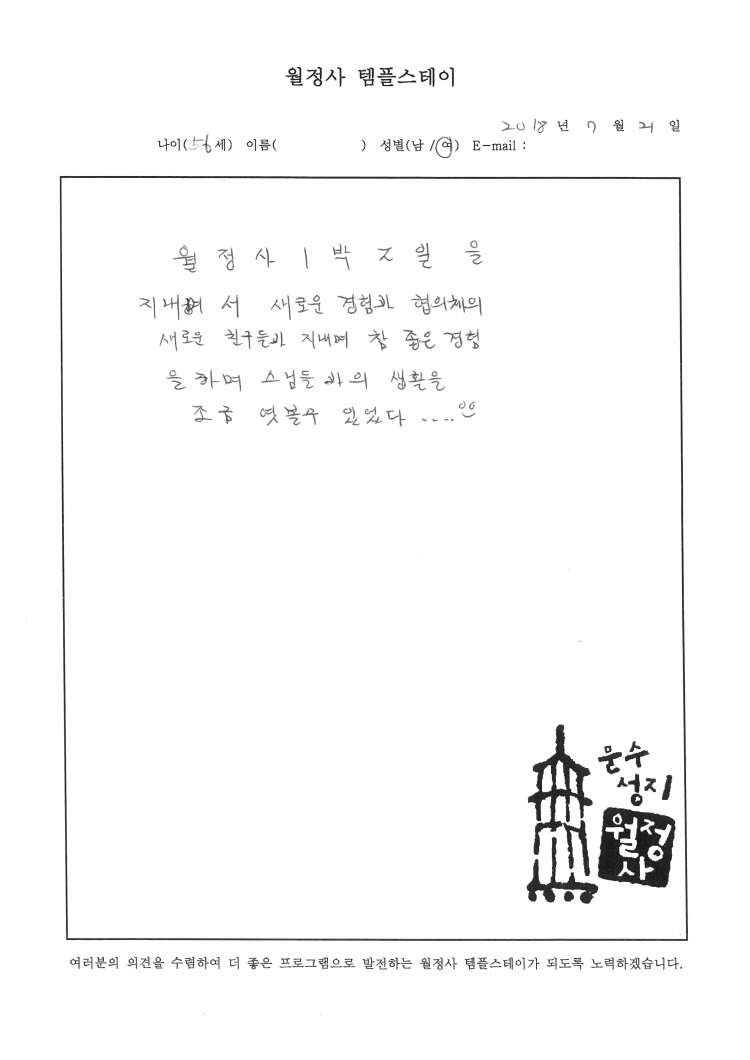 월정사 템플스테이
2018 년 7 월 21 일
나이(56세) 이름( ) 성별(남 /여) E-mail :
월정사 1박 2일 을
지내며 서 새로운 경험과 협의체의
새로운 친구들과 지내며 참 좋은 경험
을 하며 스님들과의 생활을
조금 엿볼수 있었다 ....
문수
성지
월정
사
여러분의 의견을 수렴하여 더 좋은 프로그램으로 발전하는 월정사 템플스테이가 되도록 노력하겠습니다.